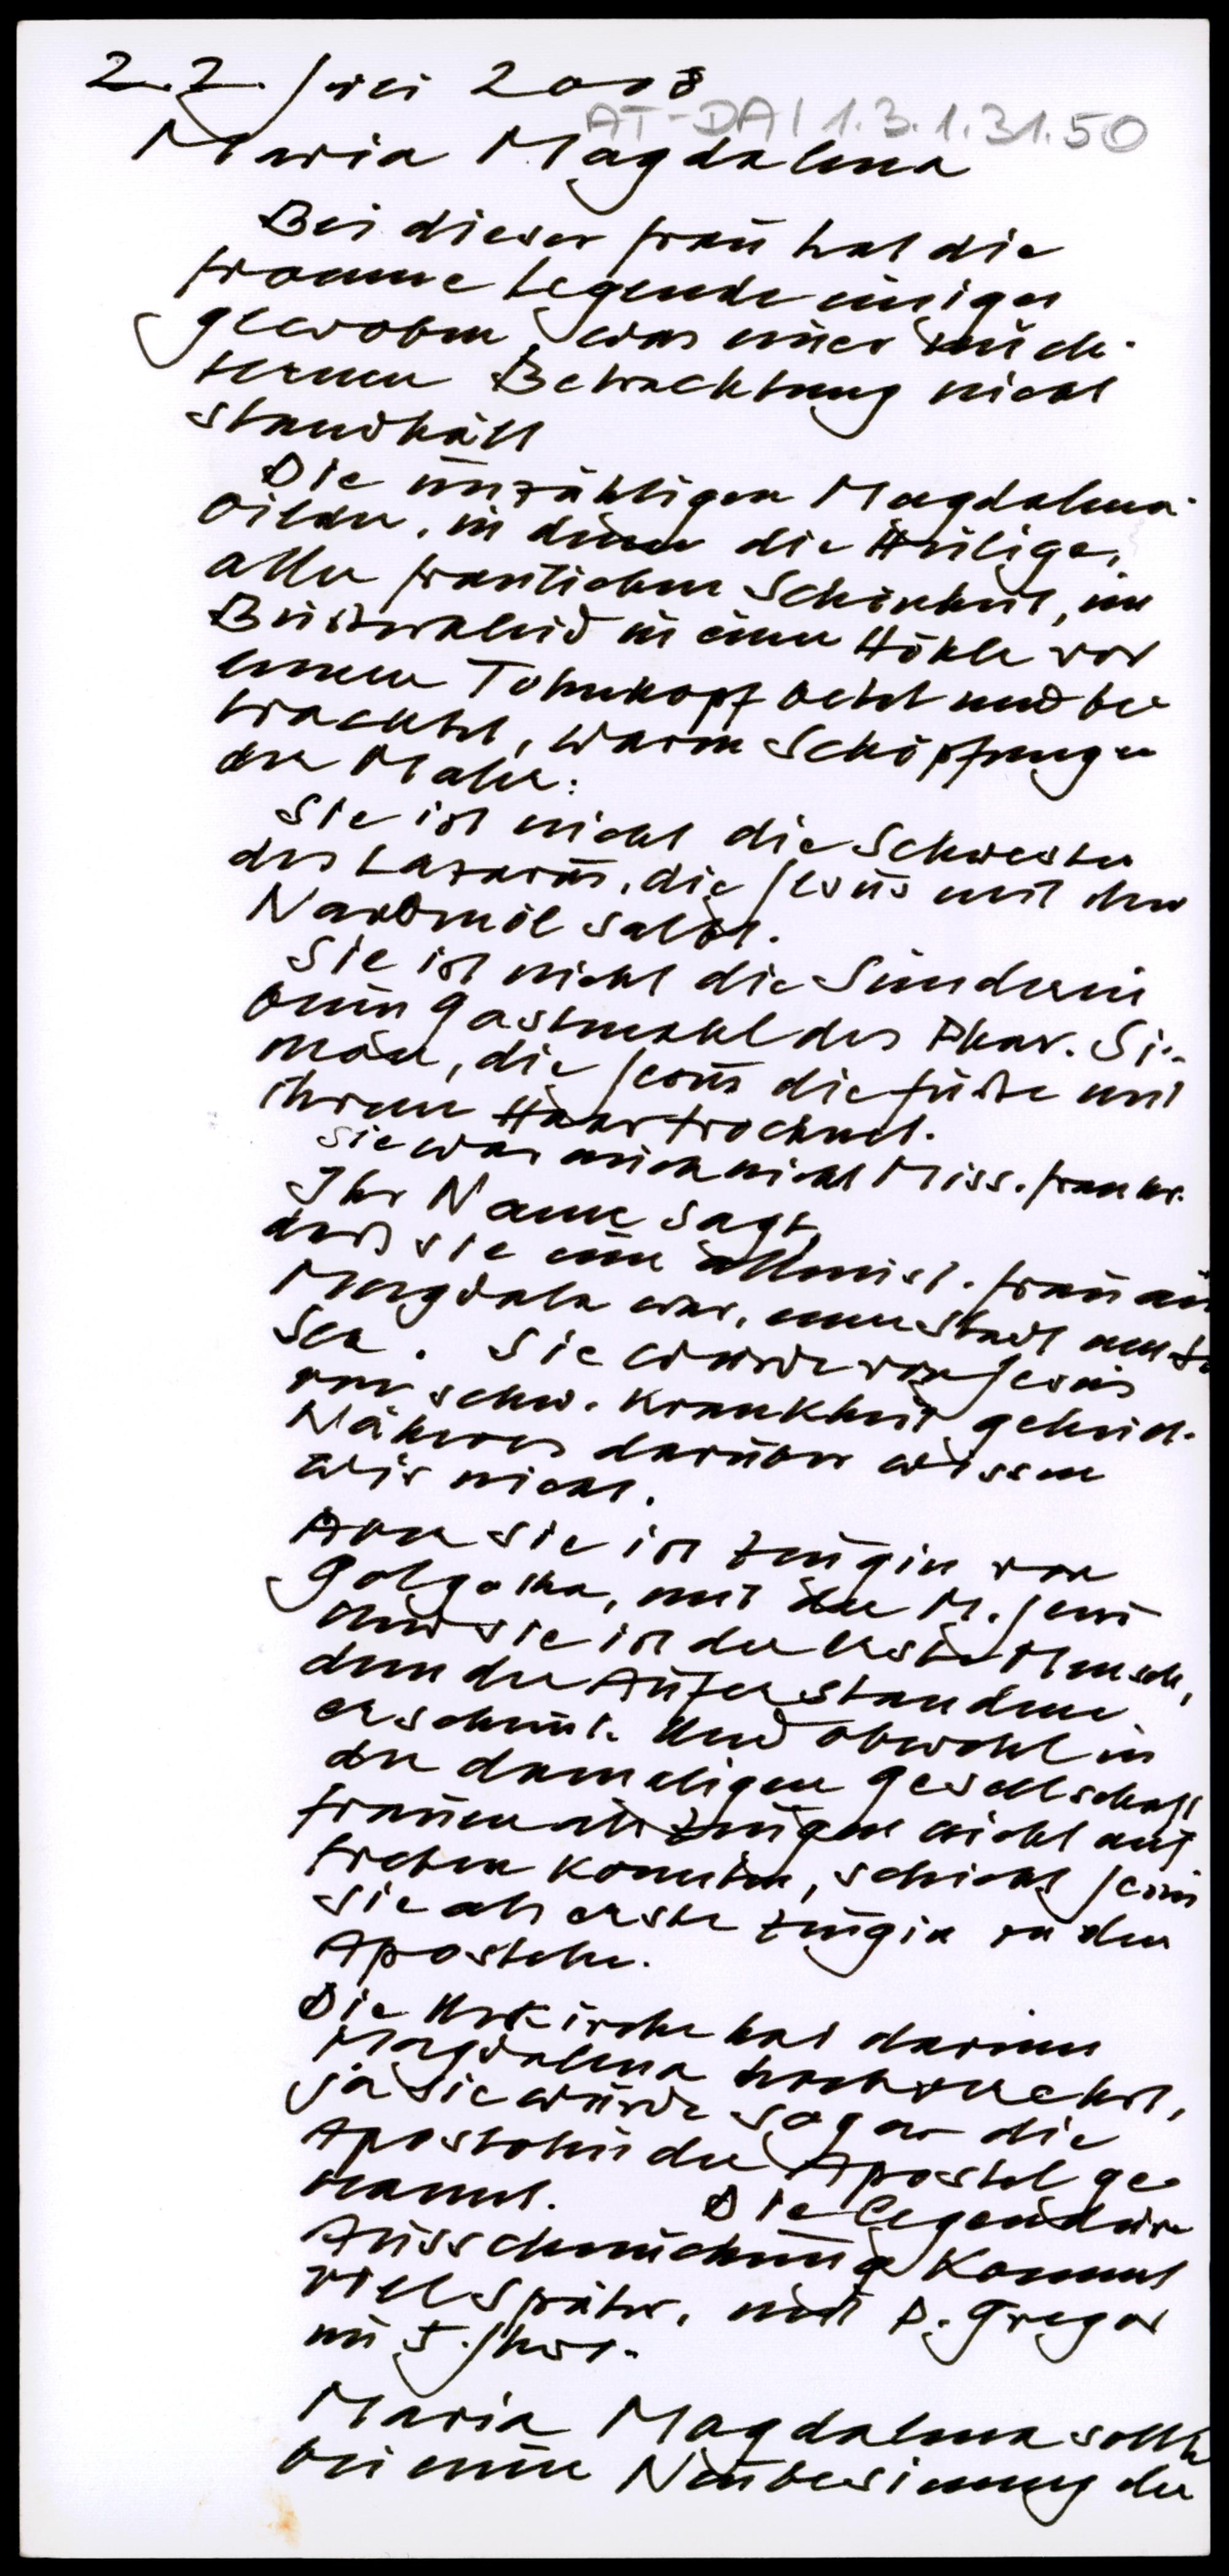 22. Juli 2008
AT-DAI 1.3.1.31.50
Maria Magdalena
Bei dieser Frau hat die
fromme Legende einiges
gewoben, was einer nüch-
ternen Betrachtung nicht
standhält
Die unzähligen Magdalena-
bilder, in denen die Heilige,
aller fraulichen Schönheit, im
Büßerkleid in einer Höhle vor
einem Totenkopf betet und be
trachtet, waren Schöpfungen
der Maler:
Sie ist nicht die Schwester
des Lazarus, die Jesus mit dem
Nardenöl salbt.
Sie ist nicht die Sünderin
beim Gastmahl des Phar. Si-
mon, die Jesus die Füße mit
ihrem Haar trocknet.
Sie war auch nicht Miss. Frankr.
Ihr Name sagt,
daß sie eine alleinst. Frau aus
Magdala war, einer Stadt am
See. Sie wurde von Jesus
von schw. Krankheit geheilt.
Näheres darüber wissen
wir nicht.
Aber sie ist Zeugin von
Golgotha, mit der M. Jesu
Und sie ist der erste Mensch,
dem der Auferstandene
erscheint. Und obwohl in
der damaligen Gesellschaft
Frauen als Zeugen nicht auf
treten konnten, schickt Jesus
sie als erste Zeugin zu den
Aposteln.
Die Urkirche hat darum
Magdalena hochverehrt,
ja sie wurde sogar die
Apostolin der Apostel ge-
nannt. Die legendäre
Ausschmückung kommt
viel später, mit P. Gregor
im 5. Jhdt.
Maria Magdalena sollte
bei einer Neubesinnung der